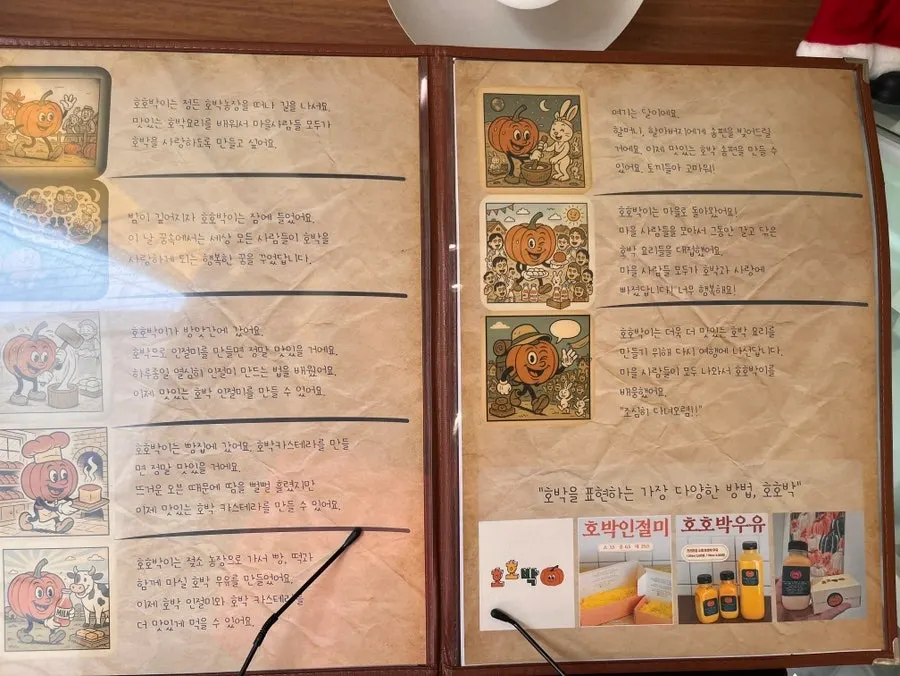 호호박이는 정든 호박농장을 떠나 길을 나서요.
맛있는 호박요리를 배워서 마을사람들 모두가
호박을 사랑하도록 만들고 싶어요.
밤이 깊어지자 호호박이는 잠에 들었어요.
이 날 꿈속에서는 세상 모든 사람들이 호박을
사랑하게 되는 행복한 꿈을 꾸었답니다.
호호박이가 방앗간에 갔어요.
호박으로 인절미를 만들면 정말 맛있을 거에요.
하루종일 열심히 인절미 만드는 법을 배웠어요.
이제 맛있는 호박 인절미를 만들 수 있어요.
호호박이는 빵집에 갔어요. 호박카스테라를 만들
면 정말 맛있을 거에요.
뜨거운 오븐 때문에 땀을 뻘뻘 흘렸지만
이제 맛있는 호박 카스테라를 만들 수 있어요.
호호박이는 젖소 농장으로 가서 빵, 떡과
함께 마실 호박 우유를 만들었어요.
이제 호박 인절미와 호박 카스테라를
더 맛있게 먹을 수 있어요.
MILK
여기는 달이에요.
할머니, 할아버지에게 송편을 빚어드릴
거에요. 이제 맛있는 호박 송편을 만들 수
있어요. 토끼들아 고마워!
호호박이는 마을로 돌아왔어요!
마을 사람들을 모아서 그동안 갈고 닦은
호박 요리들을 대접했어요.
마을 사람들 모두가 호박과 사랑에
빠졌답니다! 너무 행복해요!
호호박이는 더욱 더 맛있는 호박 요리를
만들기 위해 다시 여행에 나선답니다.
마을 사람들이 모두 나와서 호호박이를
배웅했어요.
"조심히 다녀오렴!!"
"호박을 표현하는 가장 다양한 방법, 호호박"
호호박
호박인절미
호호박우유